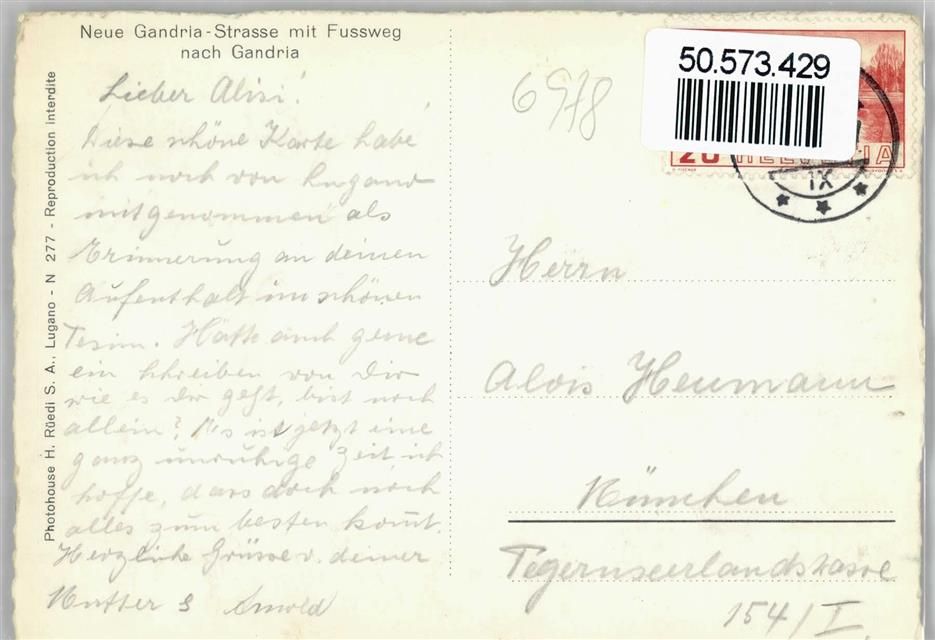 Neue Gandria-Strasse mit Fussweg
nach Gandria
Photohouse H. Rüedi S. A., Lugano - N 277 - Reproduction interdite
Lieber Alisi!
Diese schöne Karte habe
ich noch von Lugano
mitgenommen als
Erinnerung an deinen
Aufenthalt im schönen
Tessin. Hätte auch gerne
ein schreiben von Dir
wie es dir geht, bist noch
allein? Es ist jetzt eine
ganz unruhige Zeit, ich
hoffe, dass doch noch
alles zum besten komt.
Herzliche Grüsse v. deiner
Mutter & Arnold
6978
50.573.429
20 HELVETIA
IX
Herrn
Alois Heumann
München
Tegernseerlandstrasse
154/I